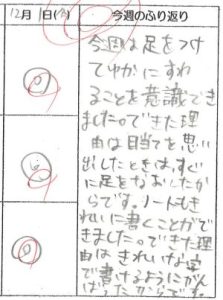 12月1日(今)
今週のふり返り
今回は足をつけ
てゆかにすわ
ることを意識でき
ました。できた理
由は目当てを思い
出したときは、すぐ
に足をなおしたか
らです。ノートもき
れいに書くことがで
きました。できた理
由はきれいな字
で書けるようにがん